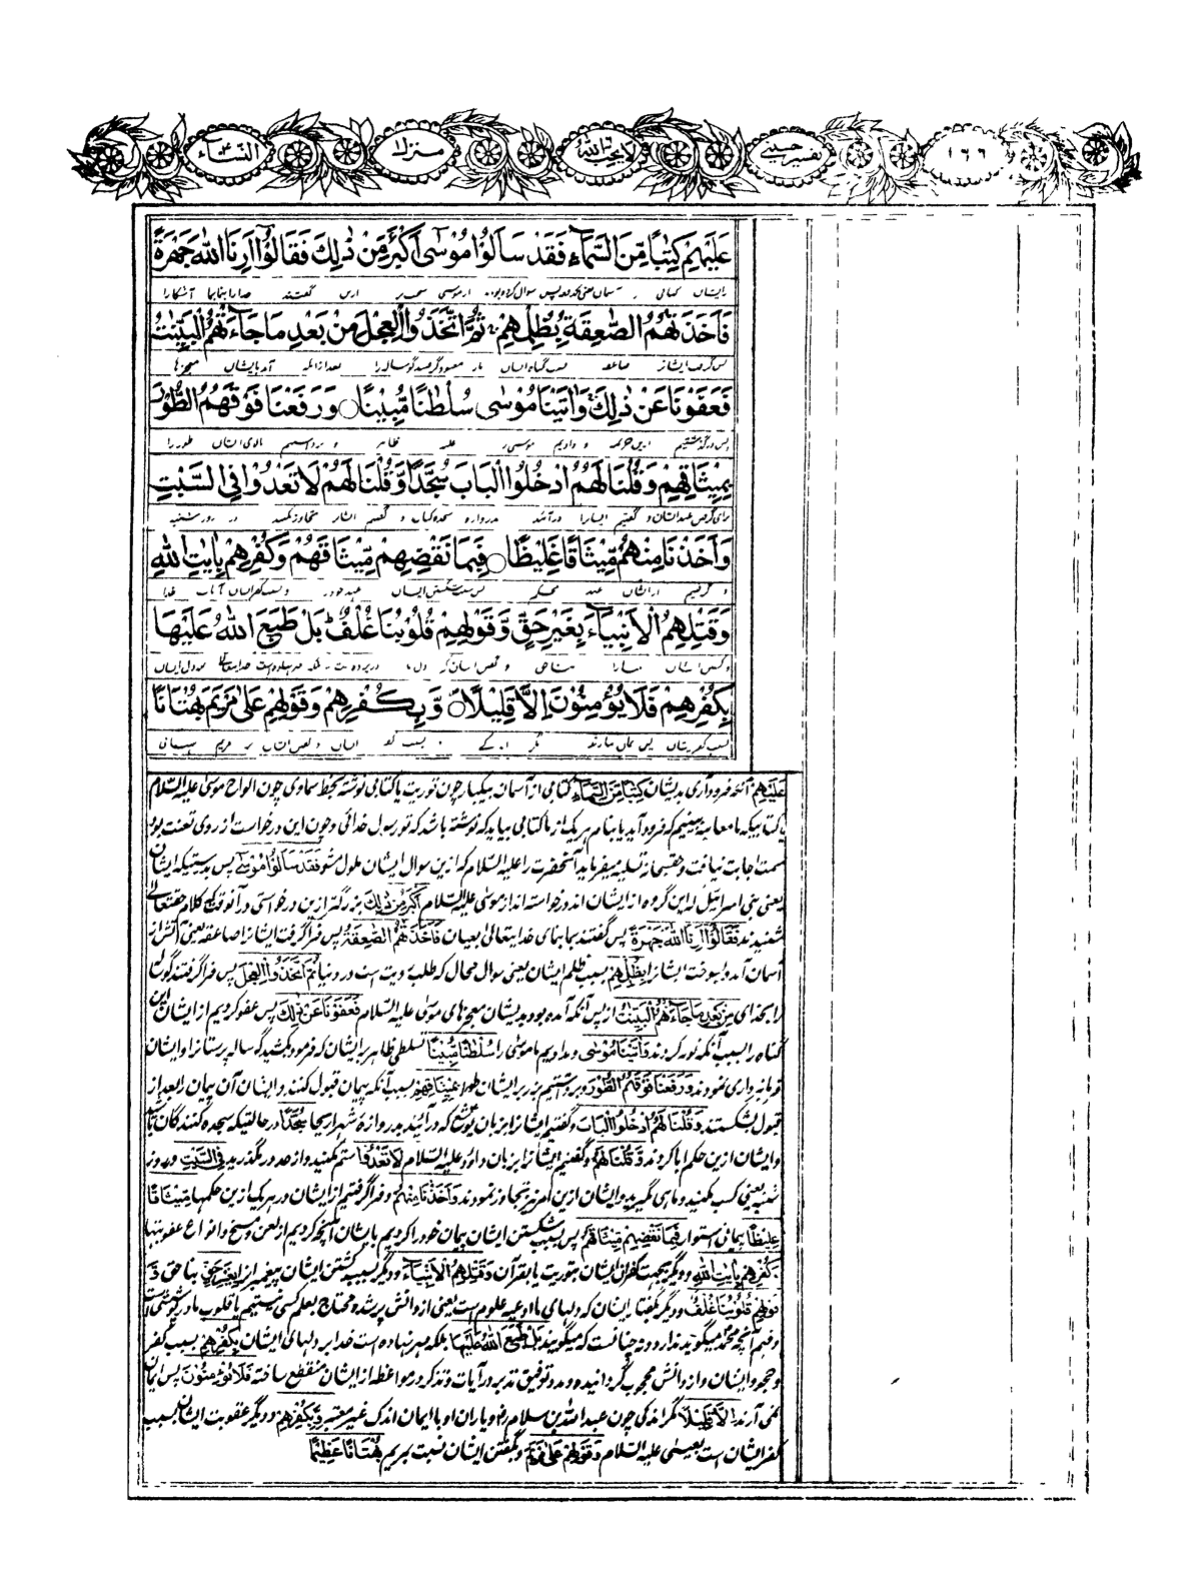 ١٦٦ تفسير حسيني لا يحب الله ٦ منزل ١ النسآء ٤
عَلَيْهِمْ كِتٰبًا مِّنَ السَّمَآءِ فَقَدْ سَاَلُوْا مُوْسٰٓى اَكْبَرَ مِنْ ذٰلِكَ فَقَالُوْٓا اَرِنَا اللّٰهَ جَهْرَةً
فَاَخَذَتْهُمُ الصّٰعِقَةُ بِظُلْمِهِمْ ۚ ثُمَّ اتَّخَذُوا الْعِجْلَ مِنْۢ بَعْدِ مَا جَآءَتْهُمُ الْبَيِّنٰتُ
فَعَفَوْنَا عَنْ ذٰلِكَ ۚ وَاٰتَيْنَا مُوْسٰى سُلْطٰنًا مُّبِيْنًا ○ وَرَفَعْنَا فَوْقَهُمُ الطُّوْرَ
بِمِيْثَاقِهِمْ وَقُلْنَا لَهُمُ ادْخُلُوا الْبَابَ سُجَّدًا وَّقُلْنَا لَهُمْ لَا تَعْدُوْا فِى السَّبْتِ
وَاَخَذْنَا مِنْهُمْ مِّيْثَاقًا غَلِيْظًا ○ فَبِمَا نَقْضِهِمْ مِّيْثَاقَهُمْ وَكُفْرِهِمْ بِاٰيٰتِ اللّٰهِ
وَقَتْلِهِمُ الْاَنْۢبِيَآءَ بِغَيْرِ حَقٍّ وَّقَوْلِهِمْ قُلُوْبُنَا غُلْفٌ ؕ بَلْ طَبَعَ اللّٰهُ عَلَيْهَا
بِكُفْرِهِمْ فَلَا يُؤْمِنُوْنَ اِلَّا قَلِيْلًا ○ وَّبِكُفْرِهِمْ وَقَوْلِهِمْ عَلٰى مَرْيَمَ بُهْتَانًا
عَلَيْهِمْ آنکه فرود آری بدیشان كِتٰبًا مِّنَ السَّمَآءِ کتابی از آسمان بیکبار چون توریت یا کتابی نوشته بخط سماوی چون الواح موسیٰ علیه السلام
یا کتابیکه ما معاینه بینیم که فرود آید یا بنام هر یک از ما کتابی بیاید که نوشته باشد که تو رسول خدائی و چون این درخواست از روی تعنت بود
سمت اجابت نیافت و حقسبحانه تسلیه میفرماید آنحضرت را علیه السلام که ازین سوال ایشان ملول مشو فَقَدْ سَاَلُوْا مُوْسٰٓى پس بدستیکه ایشان
یعنی بنی اسرائیل که این گروه از ایشان اند درخواسته اند از موسیٰ علیه السلام اَكْبَرَ مِنْ ذٰلِكَ بزرگتر ازین درخواستی در آنوقت که کلام حقتعالی
شنیدند فَقَالُوْٓا اَرِنَا اللّٰهَ جَهْرَةً پس گفتند بما بنمای خدایتعالیٰ را بعیان فَاَخَذَتْهُمُ الصّٰعِقَةُ پس فرا گرفت ایشانرا صاعقه یعنی آتش از
آسمان آمد و بسوخت ایشانرا بِظُلْمِهِمْ بسبب ظلم ایشان یعنی سوال محال که طلب رویت است در دنیا ثُمَّ اتَّخَذُوا الْعِجْلَ پس فرا گرفتند گوساله
را بخدای مِنْ بَعْدِ مَا جَآءَتْهُمُ الْبَيِّنٰتُ از پس آنکه آمده بود بدیشان معجزهای موسیٰ علیه السلام فَعَفَوْنَا عَنْ ذٰلِكَ پس عفو کردیم از ایشان این
گناه را بسبب آنکه توبه کردند وَاٰتَيْنَا مُوْسٰى و بدادیم ما موسیٰ را سُلْطٰنًا مُّبِيْنًا تسلطی ظاهر بر ایشان که فرمود بکشید گوساله پرستانرا و ایشان
فرمانبرداری نمودند وَرَفَعْنَا فَوْقَهُمُ الطُّوْرَ و برداشتیم زبر ایشان طور را بِمِيْثَاقِهِمْ بسبب آنکه پیمان قبول کنند و ایشان آن پیمان را بعد از
قبول بشکستند وَقُلْنَا لَهُمُ ادْخُلُوا الْبَابَ و گفتیم ایشانرا بزبان یوشع که درآئید بدروازهٔ شهر اریحا سُجَّدًا در حالتیکه سجده کنندگان باشید
و ایشان ازین حکم ابا کردند وَّقُلْنَا لَهُمْ و گفتیم ایشانرا بزبان داود علیه السلام لَا تَعْدُوْا ستم مکنید و از حد در مگذرید فِى السَّبْتِ در روز
شنبه یعنی کسب مکنید و ماهی مگیرید و ایشان ازین امر نیز تجاوز نمودند وَاَخَذْنَا مِنْهُمْ و فرا گرفتیم از ایشان در هر یک ازین حکمها مِّيْثَاقًا
غَلِيْظًا پیمانی استوار فَبِمَا نَقْضِهِمْ مِّيْثَاقَهُمْ پس بسبب شکستن ایشان پیمان خود را کردیم با یشان آنچه کردیم از لعن و مسخ و انواع عقوبتها
وَكُفْرِهِمْ بِاٰيٰتِ اللّٰهِ و دیگر بجهت کفران ایشان بتوریت یا بقرآن وَقَتْلِهِمُ الْاَنْۢبِيَآءَ و دیگر بسبب کشتن ایشان پیغمبرانرا بِغَيْرِ حَقٍّ بناحق وَّ
قَوْلِهِمْ قُلُوْبُنَا غُلْفٌ و دیگر بگفتار ایشان که دلهای ما اوعیه علوم است یعنی از دانش پر شده و محتاج بعلم کسی نیستیم یا قلوب ما در پوشش است
و فهم آنچه محمد میگوید ندارد و نه چنانست که میگویند بَلْ طَبَعَ اللّٰهُ عَلَيْهَا بلکه مهر نهاده است خدا بر دلهای ایشان بِكُفْرِهِمْ بسبب کفر
و جحود ایشان و از دانش محجوب گردانیده و مدد توفیق تدبر در آیات و تذکر در مواعظ از ایشان منقطع ساخته فَلَا يُؤْمِنُوْنَ پس ایمان
نمی آرند اِلَّا قَلِيْلًا مگر اندکی چون عبد الله بن سلام رض و یاران او یا ایمان اندک غیر معتبر وَّبِكُفْرِهِمْ و دیگر عقوبت ایشان بسبب
کفر ایشان است بعیسیٰ علیه السلام وَقَوْلِهِمْ عَلٰى مَرْيَمَ و بگفتن ایشان نسبت بمریم بُهْتَانًا عَظِيْمًا